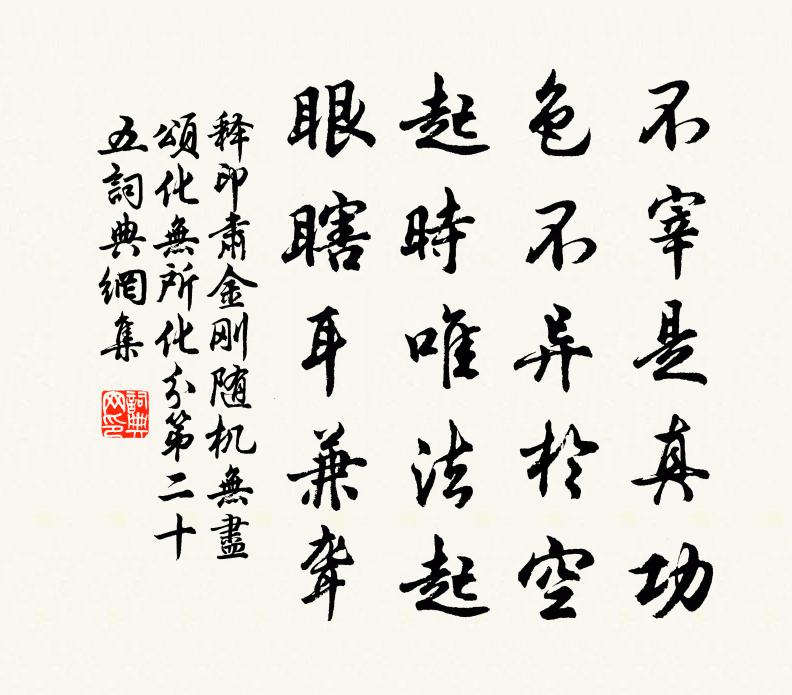 不宰是真功
色不异於空
起時唯法起
眼瞎耳兼聋
释印肃金刚随机無盡
頌化無所化分第二十
五詞典網集
詞典
网印